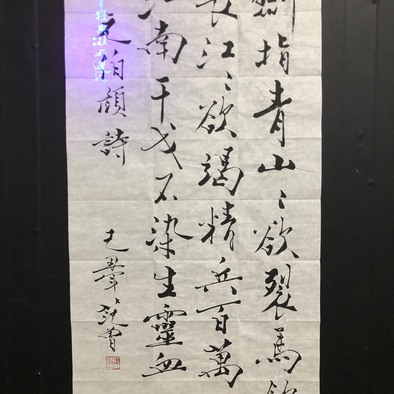 劍指青山〻欲裂馬飲
長江〻欲竭精兵百萬
江南干戈不染生靈血
元伯顏詩
書